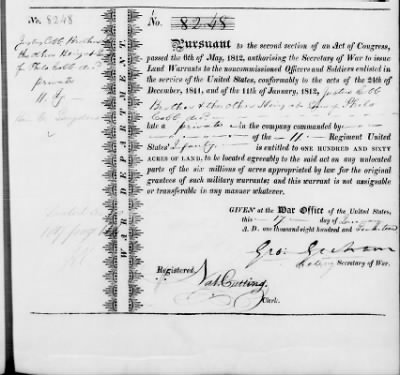 No. 8248
Justus Cobb Brother &
the other Heirs at Law
of Philo Cobb decd
private
11. Rg
No. 8248
Pursuant to the second section of an Act of Congress,
passed the 6th of May, 1812, authorising the Secretary of War to issue
Land Warrants to the noncommissioned Officers and Soldiers enlisted in
the service of the United States, conformably to the acts of the 24th of
December, 1811, and of the 11th of January, 1812, Justus Cobb
Brother & the other Heirs at Law of Philo
Cobb decd
late a private in the company commanded by
of the 11 Regiment United
States' Infantry IS ENTITLED TO ONE HUNDRED AND SIXTY
ACRES OF LAND, to be located agreeably to the said act on any unlocated
parts of the six millions of acres appropriated by law for the original
grantees of such military warrants; and this warrant is not assignable
or transferable in any manner whatever.
GIVEN at the War Office of the United States,
this 17 day of January
A. D. one thousand eight hundred and
Geo: Graham
Acting Secretary of War.
Registered,
Nat. Cutting
Clerk.
WAR DEPARTMENT.